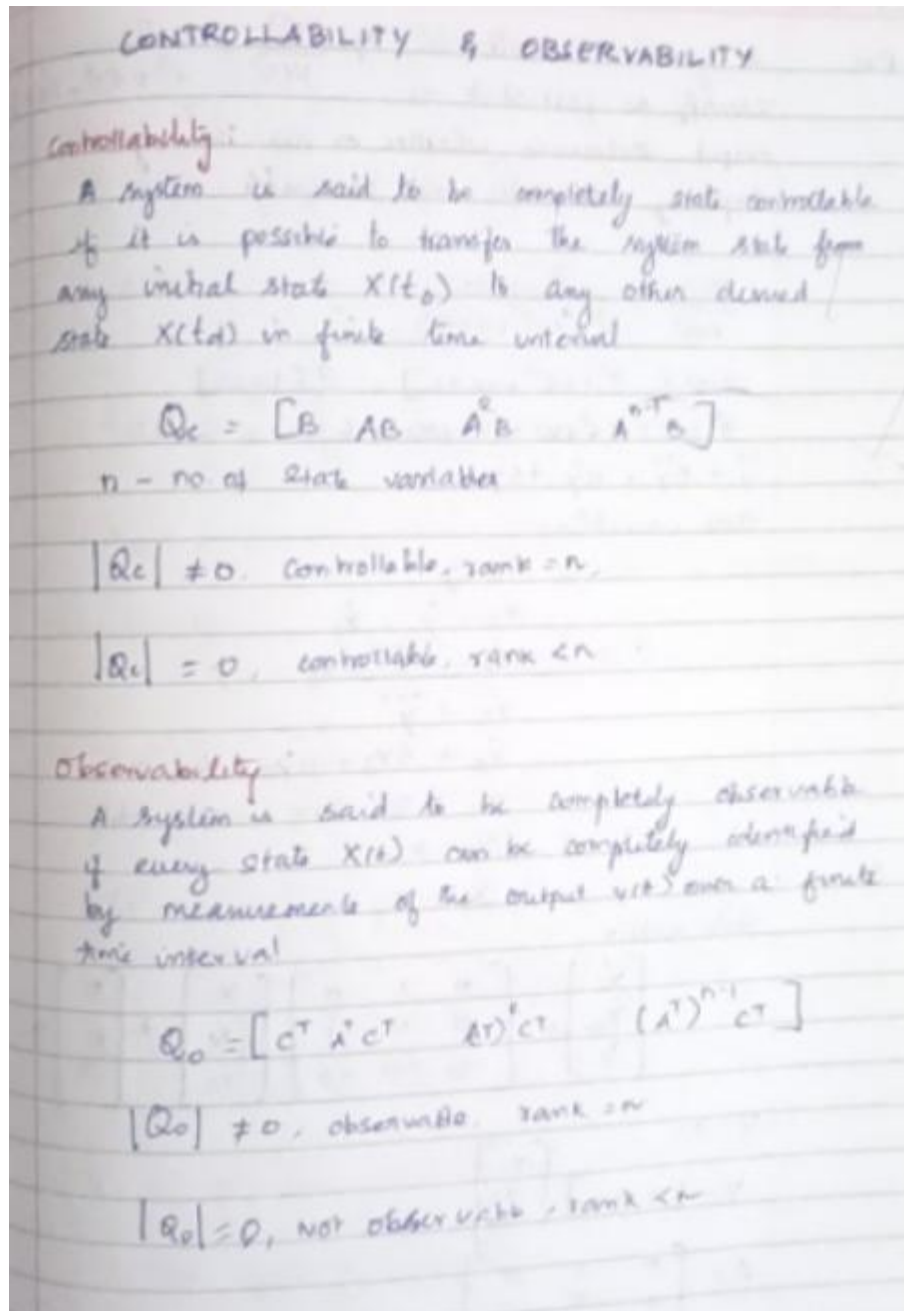 CONTROLLABILITY & OBSERVABILITY
Controllability :
A system is said to be completely state controllable
if it is possible to transfer the system state from
any initial state X(t₀) to any other desired
state X(td) in finite time interval
Qc = [B AB A²B Aⁿ⁻¹B]
n - no of state variables
|Qc| ≠ 0. controllable, rank = n,
|Qc| = 0, controllable, rank < n
Observability :
A system is said to be completely observable
if every state X(t) can be completely identified
by measurements of the output y(t) over a finite
time interval
Q₀ = [Cᵀ AᵀCᵀ (Aᵀ)²Cᵀ (Aᵀ)ⁿ⁻¹Cᵀ]
|Q₀| ≠ 0, observable. rank = n
|Q₀| = 0, NOT observable, rank < n